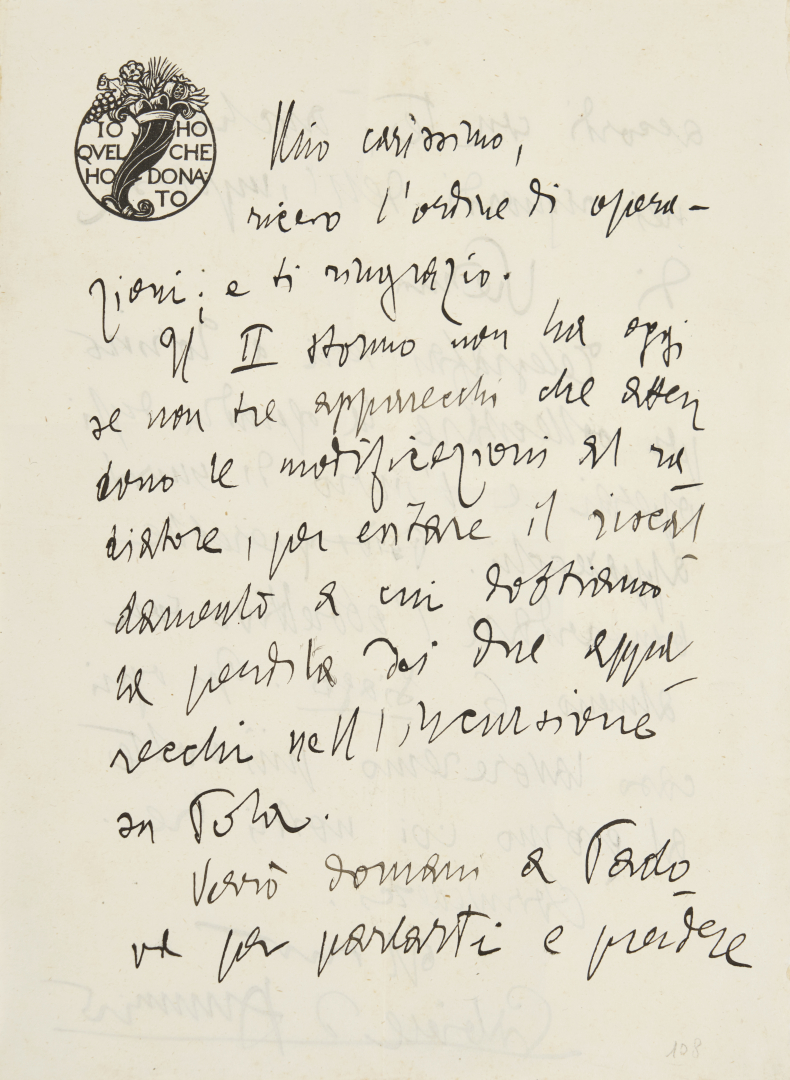 IO HO
QVEL CHE
HO DONA-
TO
Mio carissimo,
ricevo l'ordine di opera-
zioni; e ti ringrazio.
Il II stormo non ha oggi
se non tre apparecchi che atten
dono le modificazioni al ra
diatore, per evitare il riscal
damento a cui dobbiamo
la perdita dei due appa
recchi nell'incursione
su Pola.
Verrò domani a Pado
va per parlarti e prendere
108